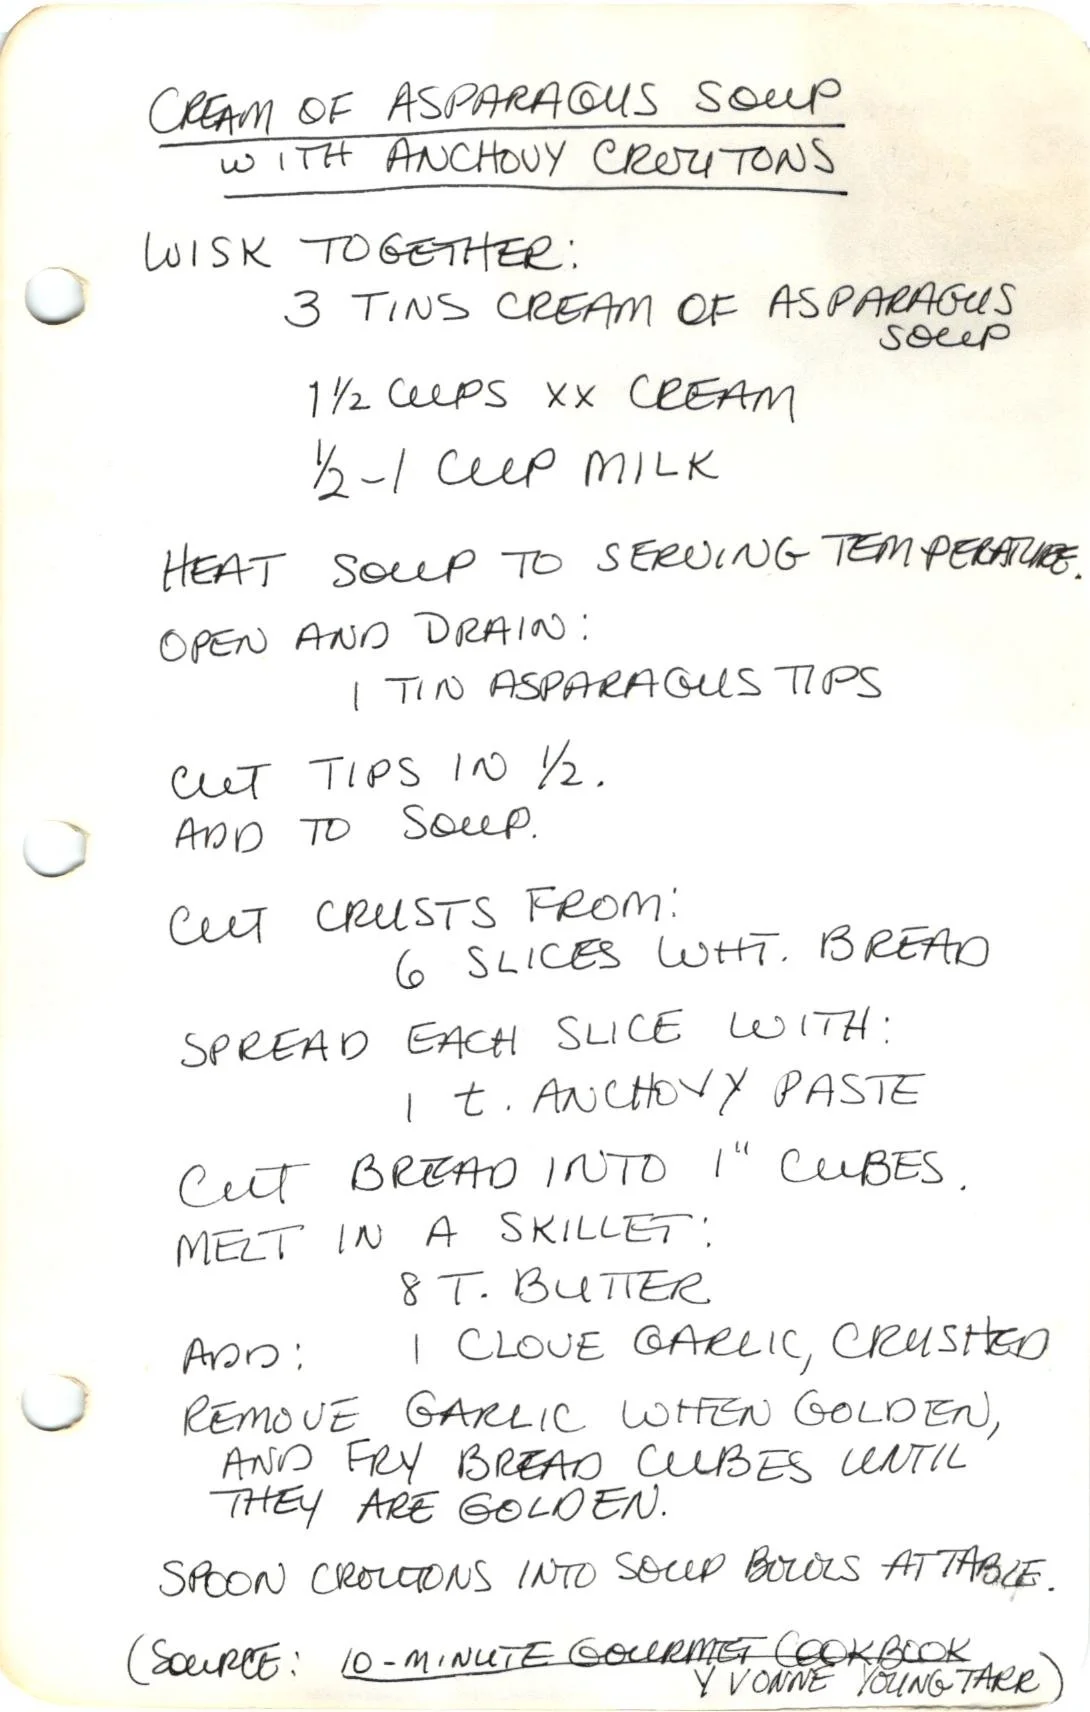 CREAM OF ASPARAGUS SOUP
WITH ANCHOVY CROUTONS
WISK TOGETHER:
3 TINS CREAM OF ASPARAGUS
SOUP
1 1/2 CUPS XX CREAM
1/2-1 CUP MILK
HEAT SOUP TO SERVING TEMPERATURE.
OPEN AND DRAIN:
1 TIN ASPARAGUS TIPS
CUT TIPS IN 1/2.
ADD TO SOUP.
CUT CRUSTS FROM:
6 SLICES WHT. BREAD
SPREAD EACH SLICE WITH:
1 t. ANCHOVY PASTE
CUT BREAD INTO 1" CUBES.
MELT IN A SKILLET:
8 T. BUTTER
ADD: 1 CLOVE GARLIC, CRUSHED
REMOVE GARLIC WHEN GOLDEN,
AND FRY BREAD CUBES UNTIL
THEY ARE GOLDEN.
SPOON CROUTONS INTO SOUP BOWLS AT TABLE.
(SOURCE: 10-MINUTE GOURMET COOKBOOK
YVONNE YOUNG TARR)